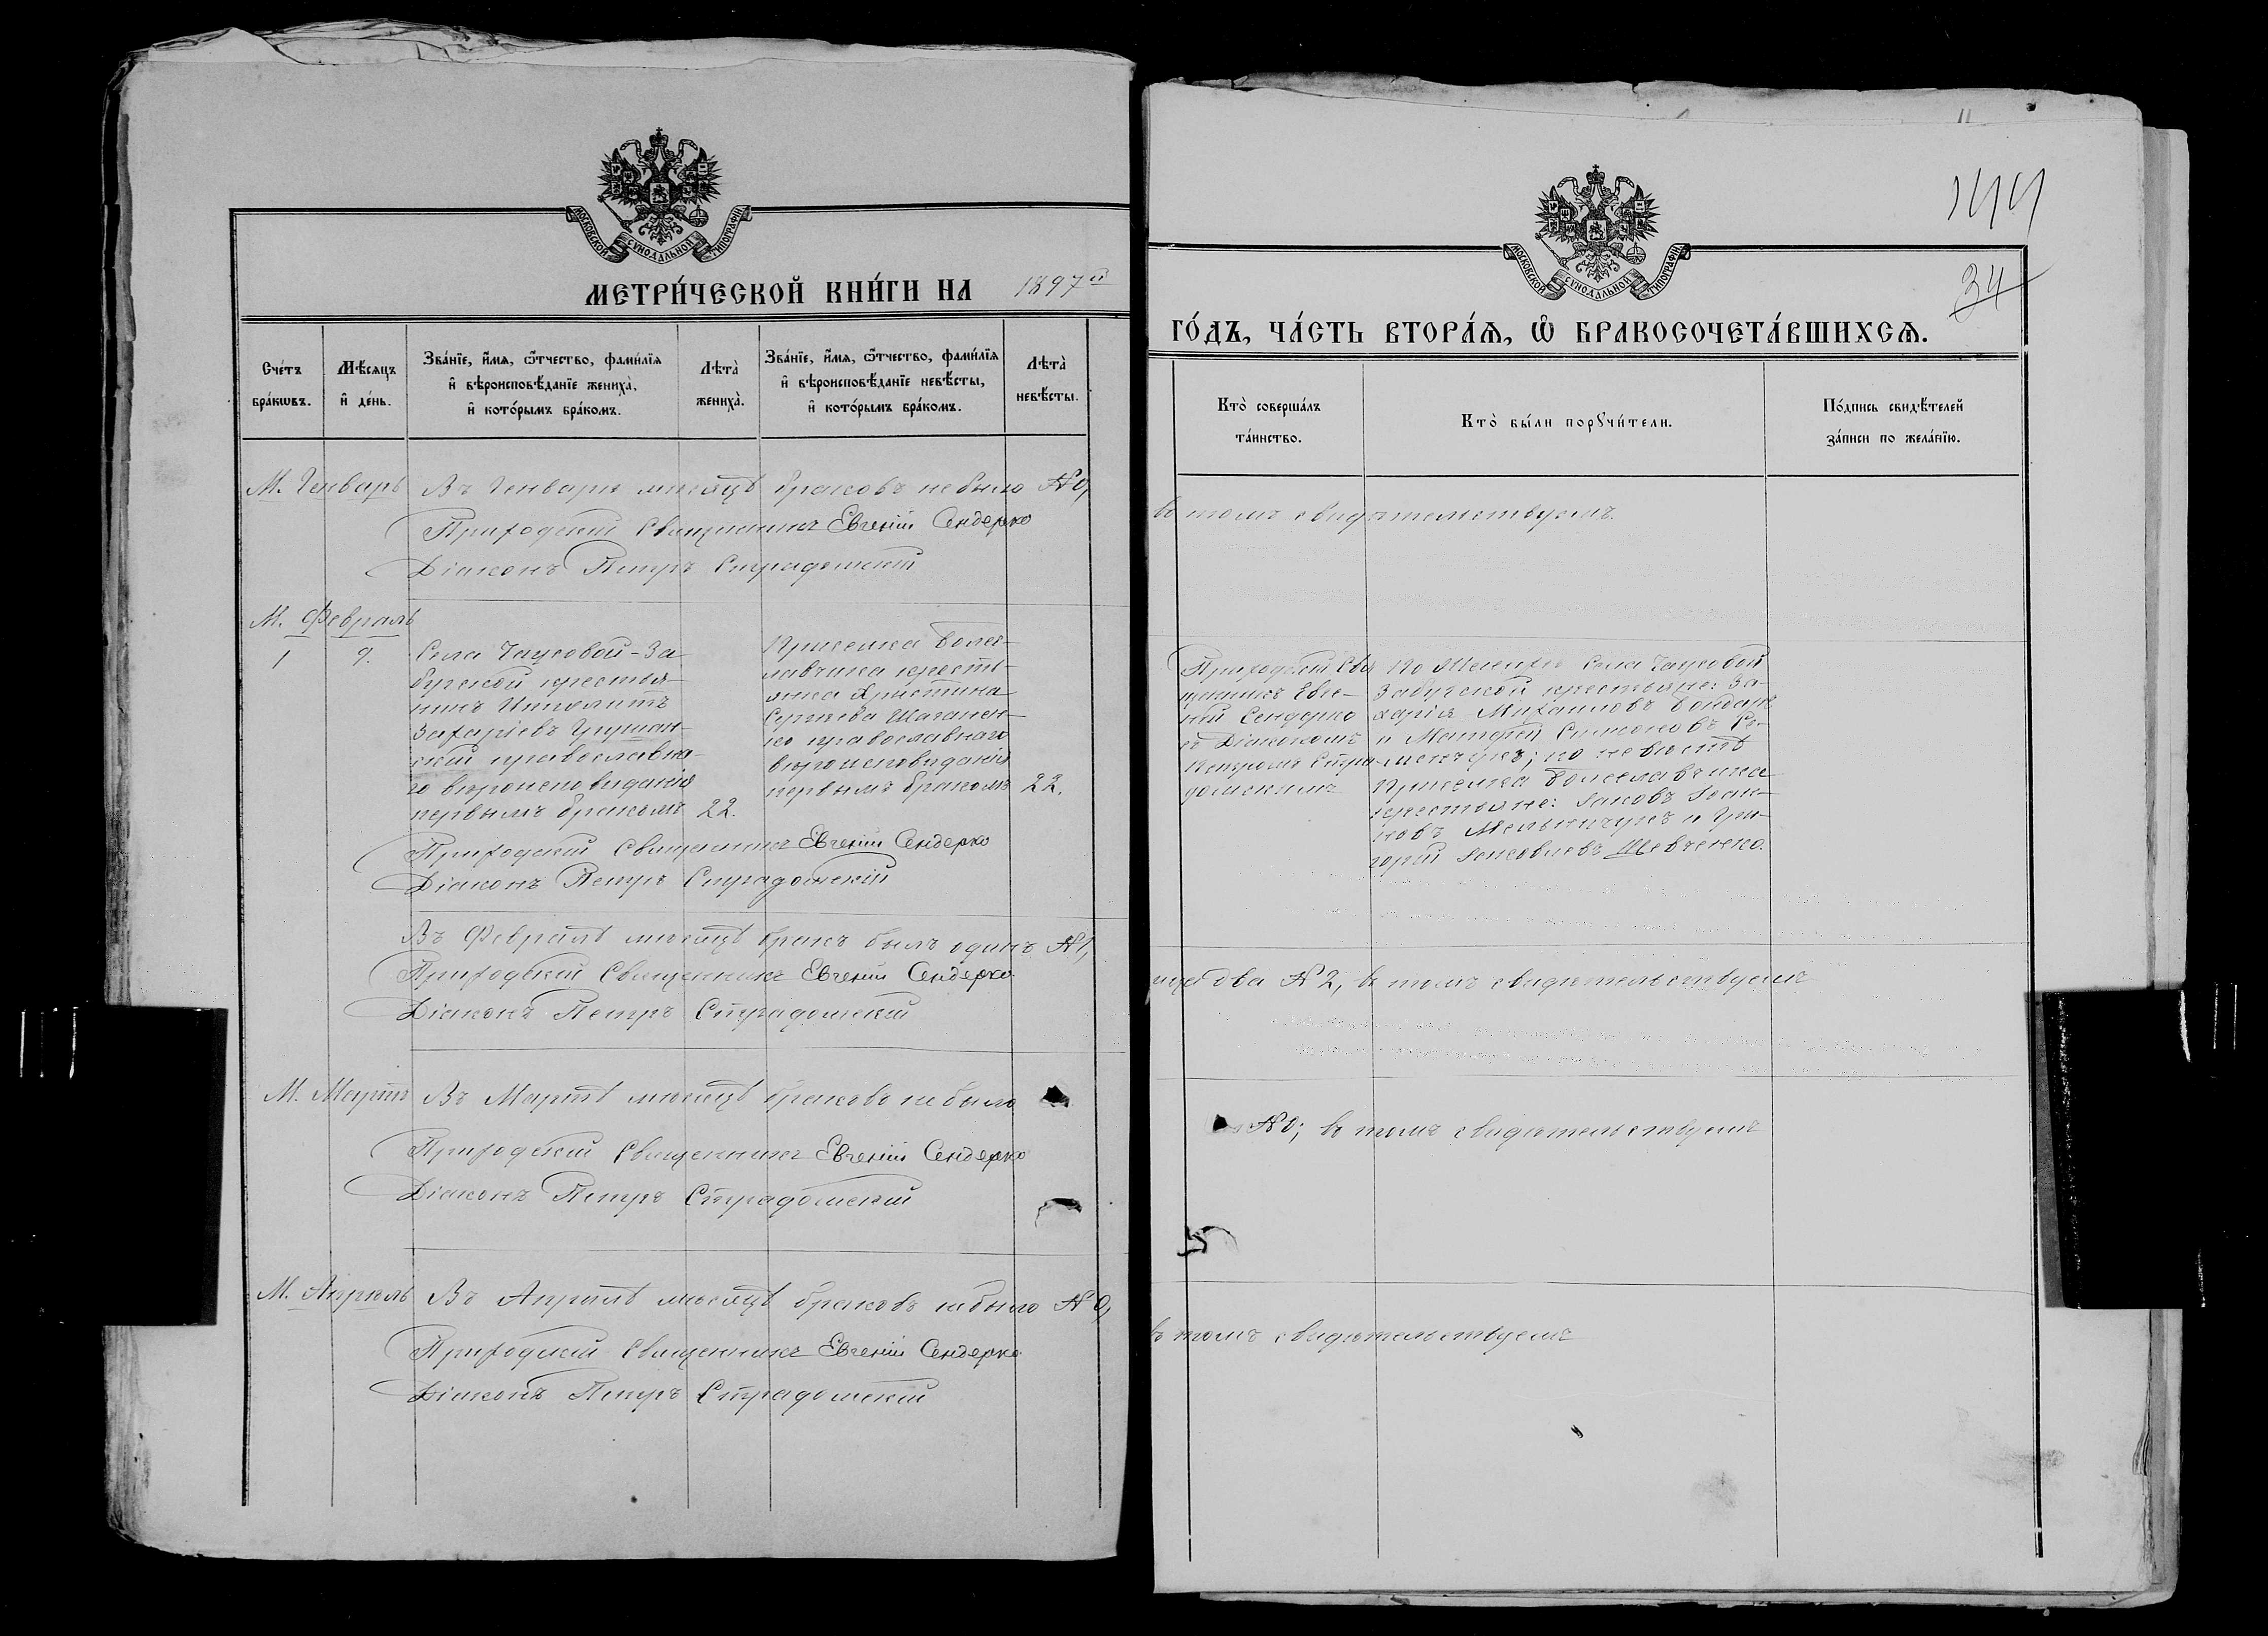 МОСКОВСКОЙ СѴНОДАЛЬНОЙ ТИПОГРАФІИ
МЕТРИ́ЧЕСКОЙ КНИ́ГИ НА 1897й
Сче́тъ бра́кωвъ.
Мѣ́сяцъ и҆ де́нь.
Зва́нїе, и҆́мя, ѻ҆́тчество, фами́лїя
и҆ вѣроисповѣ́данїе жениха̀,
и҆ кото́рымъ бра́комъ.
Лѣта̀ жениха̀.
Зва́нїе, и҆́мя, ѻ҆́тчество, фами́лїя
и҆ вѣроисповѣ́данїе невѣ́сты,
и҆ кото́рымъ бра́комъ.
Лѣта̀ невѣ́сты.
М. Генварь
Въ Генварѣ мѣсяцѣ браковъ не было № 0,
Приходскій Священникъ Евгеній Сендерко
Діаконъ Петръ Страдомскій
М. Февраль
1
9.
Села Чаусовой-За-
бугской крестья-
нинъ Ипполитъ
Захаріевъ
православна-
го вѣроисповѣданія
первымъ бракомъ
22.
Приселка Болес-
лавчика кресть-
янка Христина
Сергѣева
православнаго
вѣроисповѣданія
первымъ бракомъ
22.
Приходскій Священникъ Евгеній Сендерко
Діаконъ Петръ Страдомскій
Въ Февралѣ мѣсяцѣ бракъ былъ одинъ № 1,
Приходскій Священникъ Евгеній Сендерко
Діаконъ Петръ Страдомскій
М. Мартъ
Въ Мартѣ мѣсяцѣ браковъ не было
Приходскій Священникъ Евгеній Сендерко
Діаконъ Петръ Страдомскій
М. Апрѣль
Въ Апрѣлѣ мѣсяцѣ браковъ не было № 0,
Приходскій Священникъ Евгеній Сендерко
Діаконъ Петръ Страдомскій
144
34
МОСКОВСКОЙ СѴНОДАЛЬНОЙ ТИПОГРАФІИ
ГО́ДЪ, ЧА́СТЬ ВТОРА́Ѧ, Ѽ БРАКОСОЧЕТА́ВШИХСѦ.
Кто̀ соверша́лъ
та́инство.
Кто̀ бы́ли порꙋчи́тели.
По́дпись свидѣ́телей
за́писи по жела́нїю.
въ томъ свидѣтельствуемъ.
Приходскій Свя
щенникъ Евге-
ній Сендерко
съ Діакономъ
Петромъ Стра-
домскимъ
По женихѣ Села Чаусовой
Забугской крестьяне: За-
харія Михаиловъ Бондарь
и Матфей Симоновъ Кре-
менчукъ; по невѣстѣ
Приселка Болеславчика
крестьяне: Іаковъ Іоан-
новъ Мельничукъ и Гри-
горій Іаковлевъ Шевченко.
два № 2, въ томъ свидѣтельствуемъ
№ 0; въ томъ свидѣтельствуемъ
въ томъ свидѣтельствуемъ